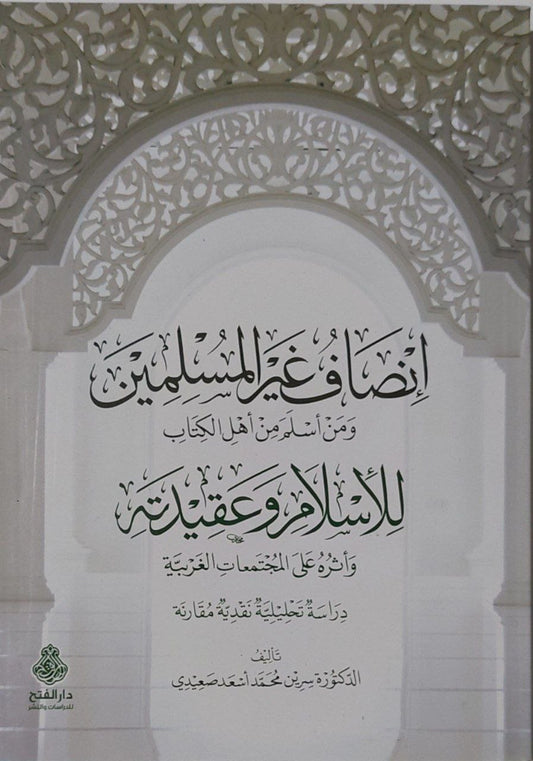 إِنْصَافُ غَيْرِ المُسْلِمِينَ
وَمَنْ أَسْلَمَ مِنْ أَهْلِ الكِتَابِ
لِلْإِسْلَامِ وَعَقِيدَتِهِ
وَأَثَرُهُ عَلَى المُجْتَمَعَاتِ الغَرْبِيَّةِ
دِرَاسَةٌ تَحْلِيلِيَّةٌ نَقْدِيَّةٌ مُقَارَنَة
تَأْلِيفُ
الدكتورة سيرين محمد أسعد صعيدي
دار الفتح
للدراسات والنشر